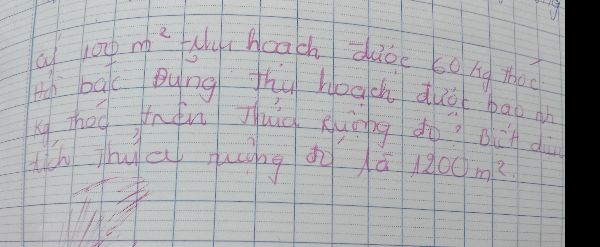 cứ 100 m² thu hoạch được 60 kg thóc.
Hỏi bác Dũng thu hoạch được bao nh
kg thóc trên thửa ruộng đó? Biết diện
tích thửa ruộng đó là 1200 m².